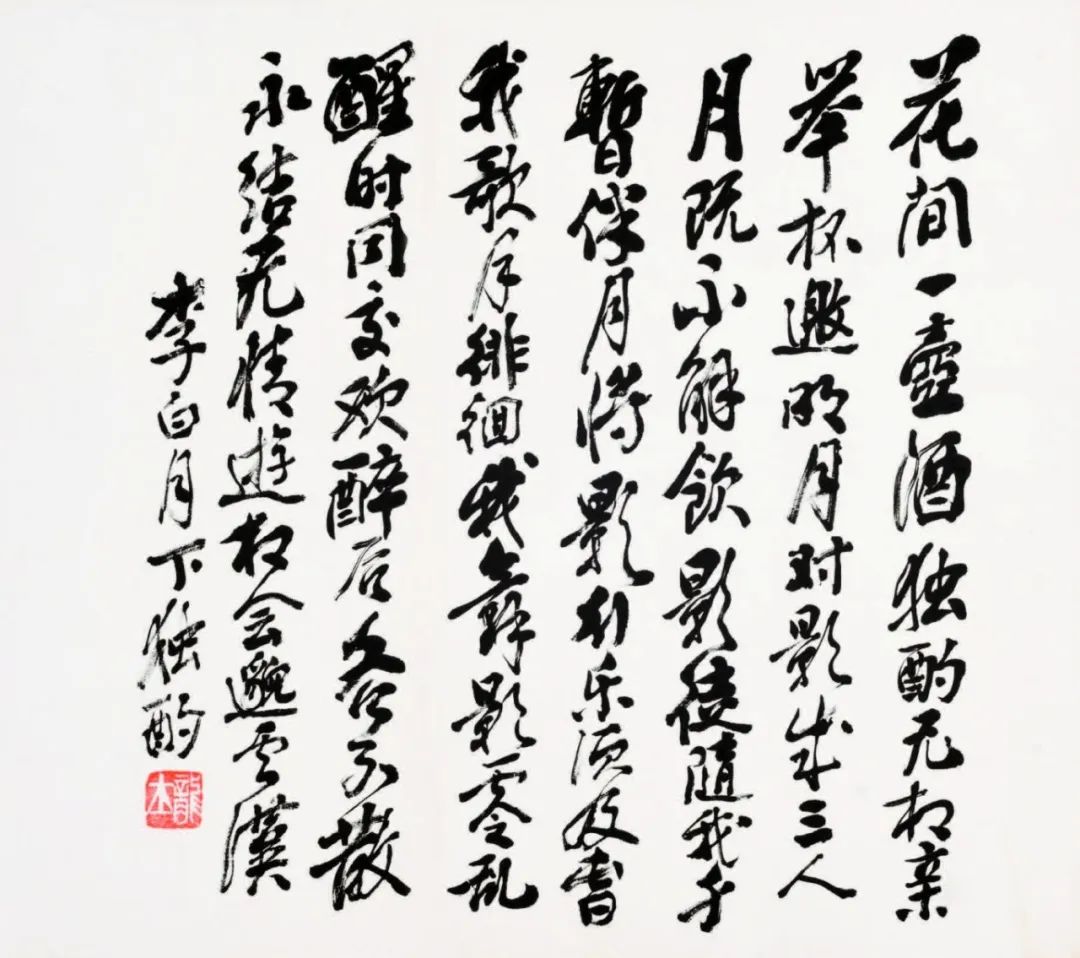 花间一壺酒独酌无相亲
举杯邀明月对影成三人
月既不解飲影徒隨我身
暫伴月将影行乐须及春
我歌月徘徊我舞影零乱
醒时同交欢醉后各分散
永结无情遊相会邈云漢
李白月下独酌